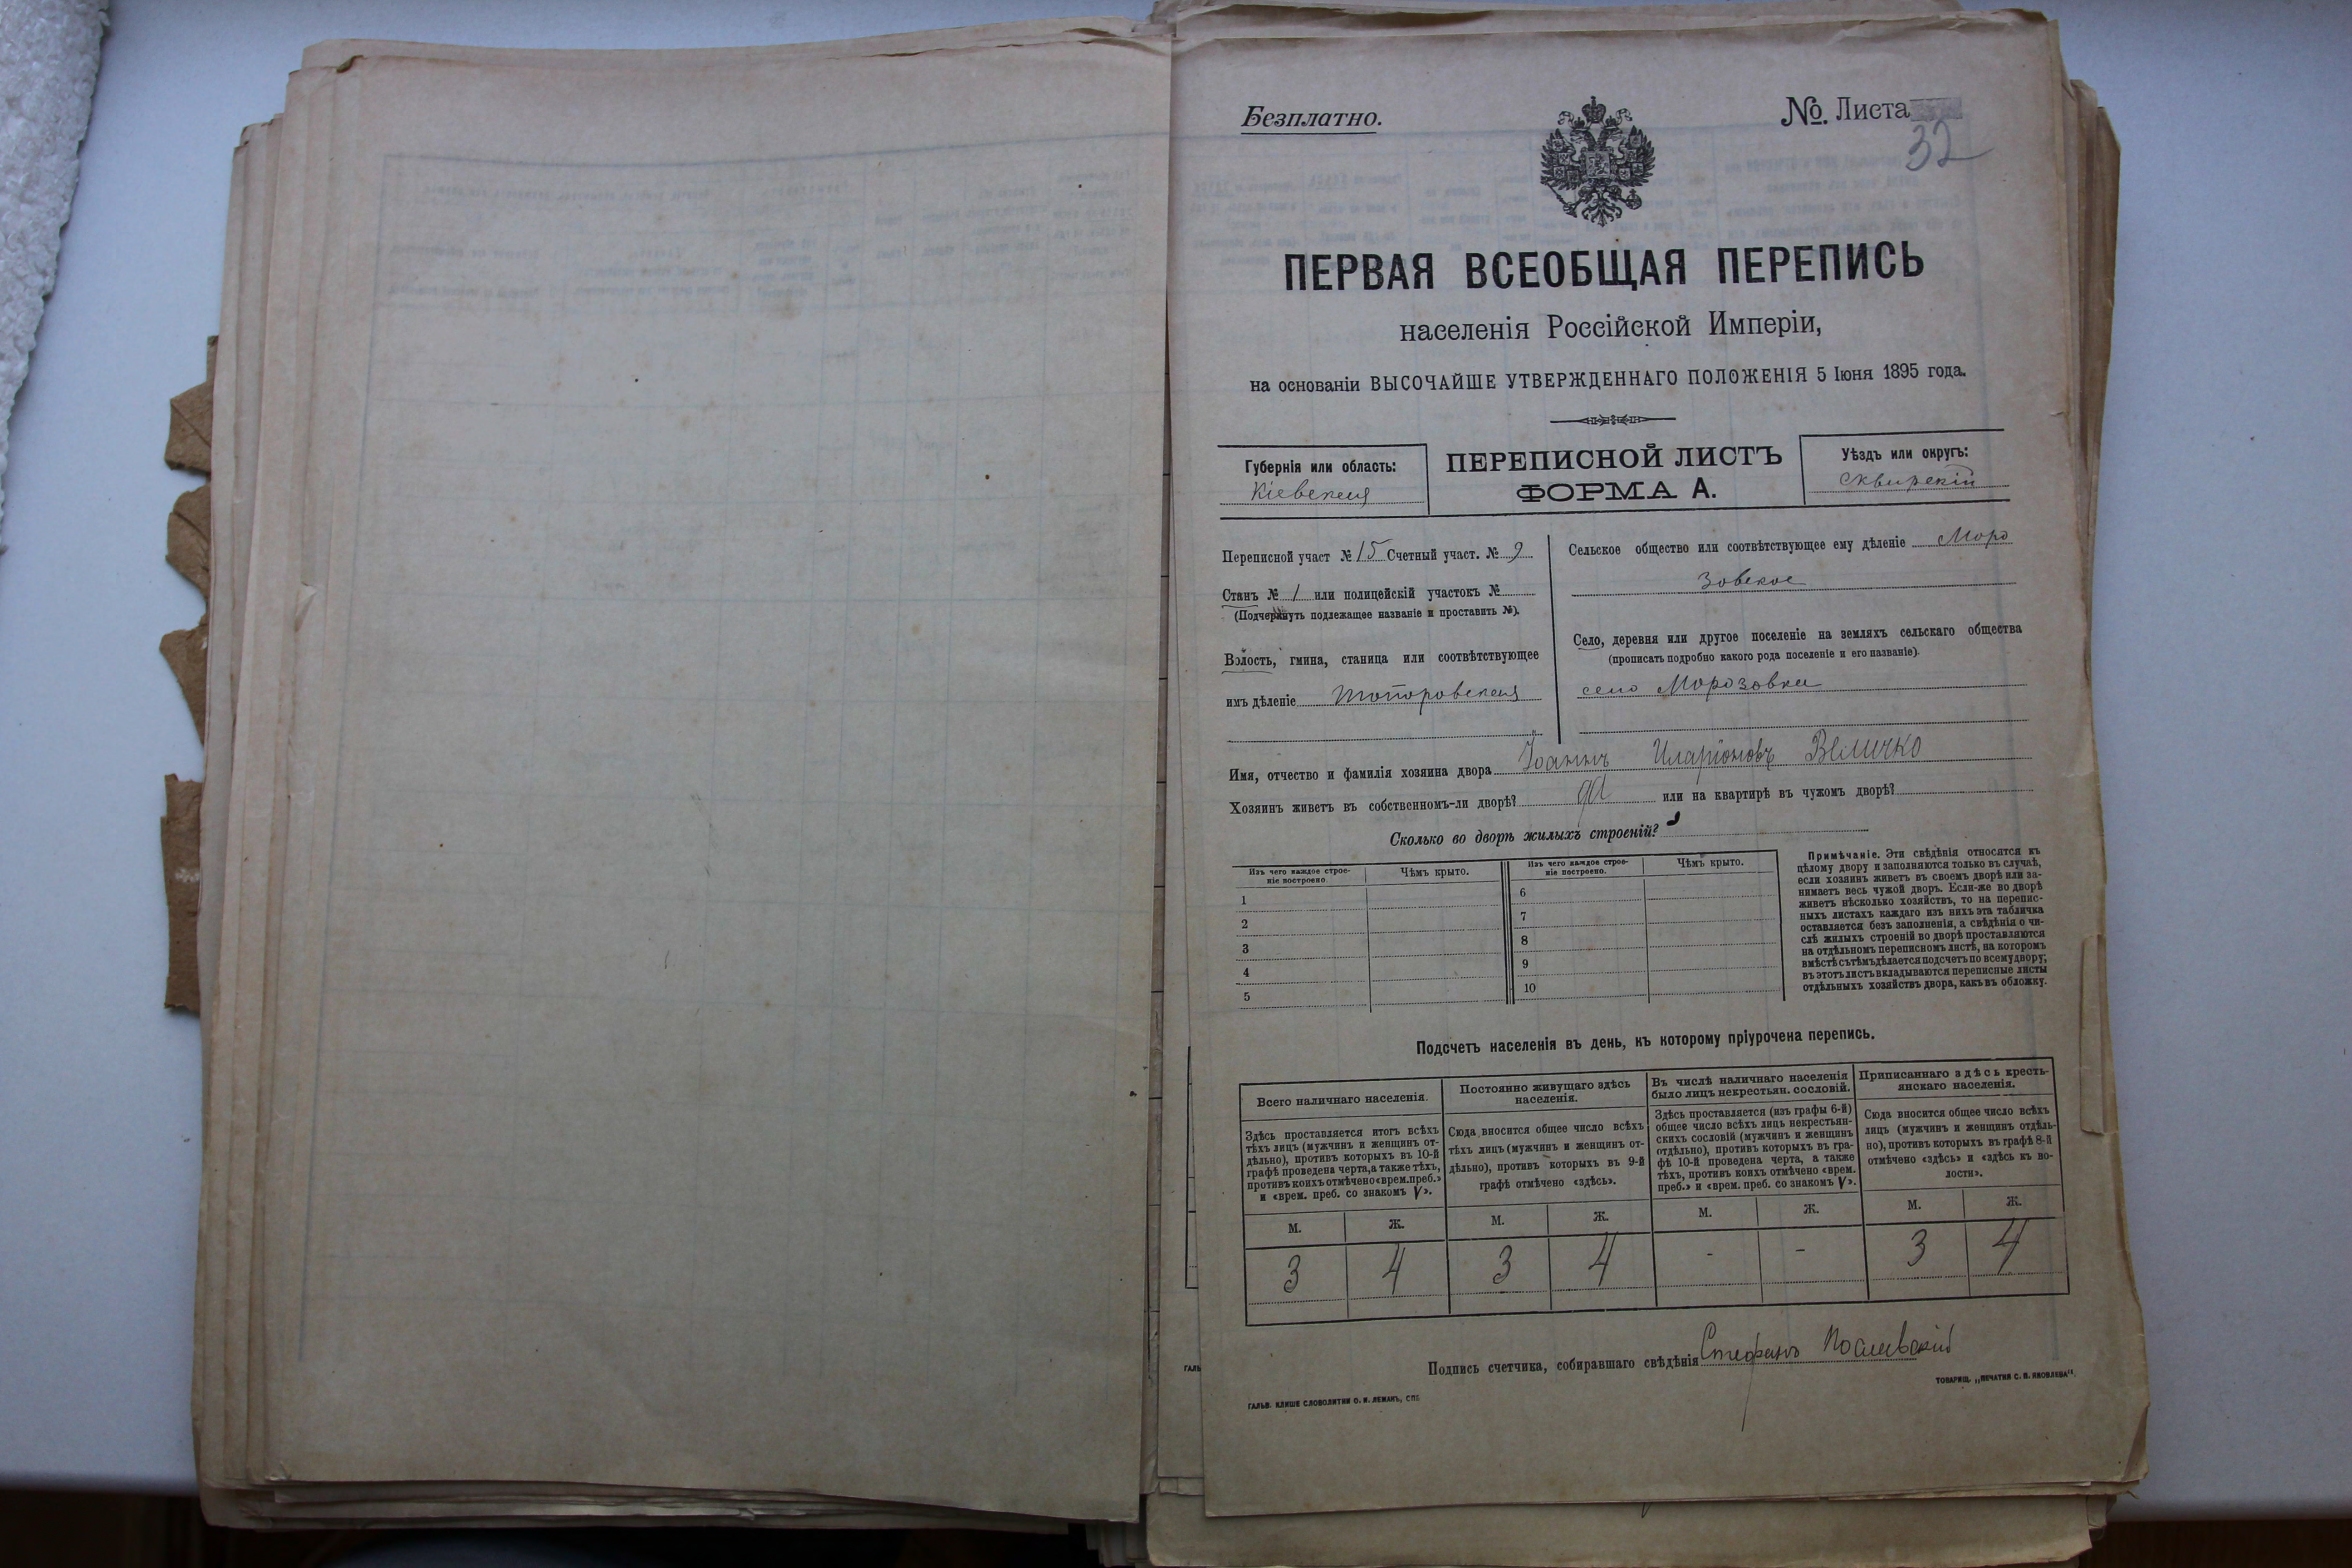 Безплатно.
№ Листа
32
ПЕРВАЯ ВСЕОБЩАЯ ПЕРЕПИСЬ
населенія Россійской Имперіи,
на основаніи ВЫСОЧАЙШЕ УТВЕРЖДЕННАГО ПОЛОЖЕНІЯ 5 Іюня 1895 года.
Губернія или область:
Кіевская
ПЕРЕПИСНОЙ ЛИСТЪ
ФОРМА А.
Уѣздъ или округъ:
Сквирскій
Переписной участ № 15 Счетный участ. № 9
Станъ № 1 или полицейскій участокъ №
(Подчеркнуть подлежащее названіе и проставить №).
Волость, гмина, станица или соотвѣтствующее
имъ дѣленіе Топоровская
Сельское общество или соотвѣтствующее ему дѣленіе Моро
зовское
Село, деревня или другое поселеніе на земляхъ сельскаго общества
(прописать подробно какого рода поселеніе и его названіе).
село Морозовка
Имя, отчество и фамилія хозяина двора Іоаннъ Иларіоновъ Величко
Хозяинъ живетъ въ собственномъ-ли дворѣ? да или на квартирѣ въ чужомъ дворѣ?
Сколько во дворѣ жилыхъ строеній?
Изъ чего каждое строе-
ніе построено
Чѣмъ крыто.
Изъ чего каждое строе-
ніе построено.
Чѣмъ крыто.
1
2
3
4
5
6
7
8
9
10
Примѣчаніе. Эти свѣдѣнія относятся къ
цѣлому двору и заполняются только въ случаѣ,
если хозяинъ живетъ въ своемъ дворѣ или за-
нимаетъ весь чужой дворъ. Если-же во дворѣ
живетъ нѣсколько хозяйствъ, то на перепис-
ныхъ листахъ каждаго изъ нихъ эта табличка
оставляется безъ заполненія, а свѣдѣнія о чи-
слѣ жилыхъ строеній во дворѣ проставляются
на отдѣльномъ переписномъ листѣ, на которомъ
вмѣстѣ съ тѣмъ дѣлается подсчетъ по всему двору;
въ этотъ листъ вкладываются переписные листы
отдѣльныхъ хозяйствъ двора, какъ въ обложку.
Подсчетъ населенія въ день, къ которому пріурочена перепись.
Всего наличнаго населенія.
Здѣсь проставляется итогъ всѣхъ
тѣхъ лицъ (мужчинъ и женщинъ от-
дѣльно), противъ которыхъ въ 10-й
графѣ проведена черта, а также тѣхъ,
противъ коихъ отмѣчено «врем. преб.»
и «врем. преб. со знакомъ V».
Постоянно живущаго здѣсь
населенія.
Сюда вносится общее число всѣхъ
тѣхъ лицъ (мужчинъ и женщинъ от-
дѣльно), противъ которыхъ въ 9-й
графѣ отмѣчено «здѣсь».
Въ числѣ наличнаго населенія
было лицъ некрестьян. сословій.
Здѣсь проставляется (изъ графы 6-й)
общее число всѣхъ лицъ некрестьян-
скихъ сословій (мужчинъ и женщинъ
отдѣльно), противъ которыхъ въ гра-
фѣ 10-й проведена черта, а также
тѣхъ, противъ коихъ отмѣчено «врем.
преб.» и «врем. преб. со знакомъ V».
Приписаннаго здѣсь кресть-
янскаго населенія.
Сюда вносится общее число всѣхъ
лицъ (мужчинъ и женщинъ отдѣль-
но), противъ которыхъ въ графѣ 8-й
отмѣчено «здѣсь» и «здѣсь къ во-
лости».
М. Ж. М. Ж. М. Ж. М. Ж.
3 4 3 4 - - 3 4
Подпись счетчика, собиравшаго свѣдѣнія Стефанъ
ГАЛЬВ. КЛИШЕ СЛОВОЛИТНИ О. И. ЛЕМАНЪ, СПБ
ТОВАРИЩ. „ПЕЧАТНЯ С. П. ЯКОВЛЕВА".
ГАЛЬ